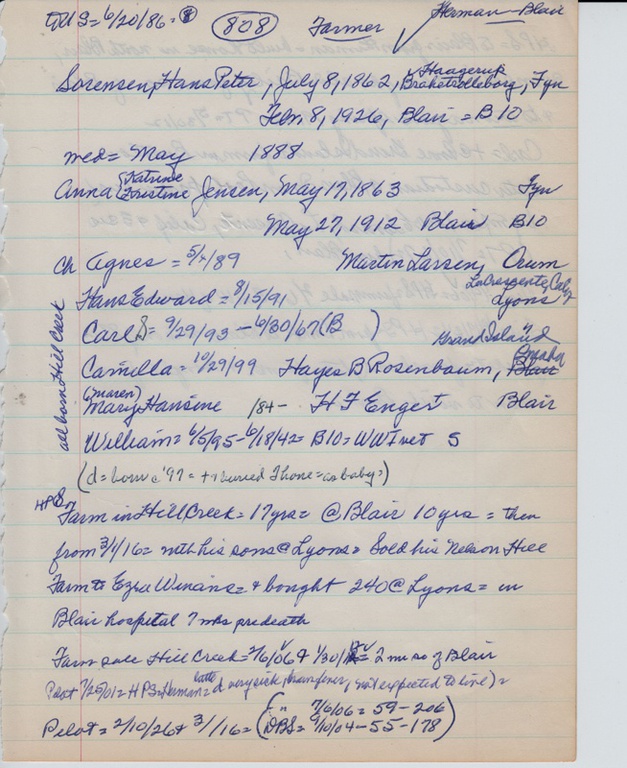 TUS = 6/20/86 = 8
808
Farmer
Herman - Blair
Sorensen, Hans Peter, July 8, 1862, Haagerup Brahetrolleborg, Fyn
Febr. 8, 1926, Blair = B10
med = May 1888
Anna (Katrine Kirstine) Jensen, May 17, 1863 Fyn
May 27, 1912 Blair B10
Ch Agnes = 5/4/89 Martin Larsen, Orum
Hans Edward = 8/15/91 LaCrescente, Calif Lyons
Carl S = 9/29/93 - 6/30/67 (B )
Camilla = 10/29/99 Hayes B Rosenbaum, Grand Island Omaha Blair
(Maren)
Mary Hansine /84 - H F Engert Blair
William = 6/5/95 - 6/18/42 = B10 = WWI vet S
all born Hill Creek
(d = born c'97 = + buried Thone = as baby =)
HPS
Farm in Hill Creek = 17 yrs = @ Blair 10 yrs = then
from 3/1/16 = with his sons @ Lyons = Sold his Nelson Hill
Farm to Ezra Winains = + bought 240 @ Lyons = in
Blair hospital 7 wks predeath
Farm sale Hill Creek = 2/6/06 & 1/30/12 = 2 mi so of Blair
Pilot 7/25/01 = HPS = Herman = d very sick, brain fever, not expected to live) =
Pilot = 2/10/26 & 3/1/16 = ( " 7/6/06 = 59-206
DBS = 9/10/04 - 55-178)